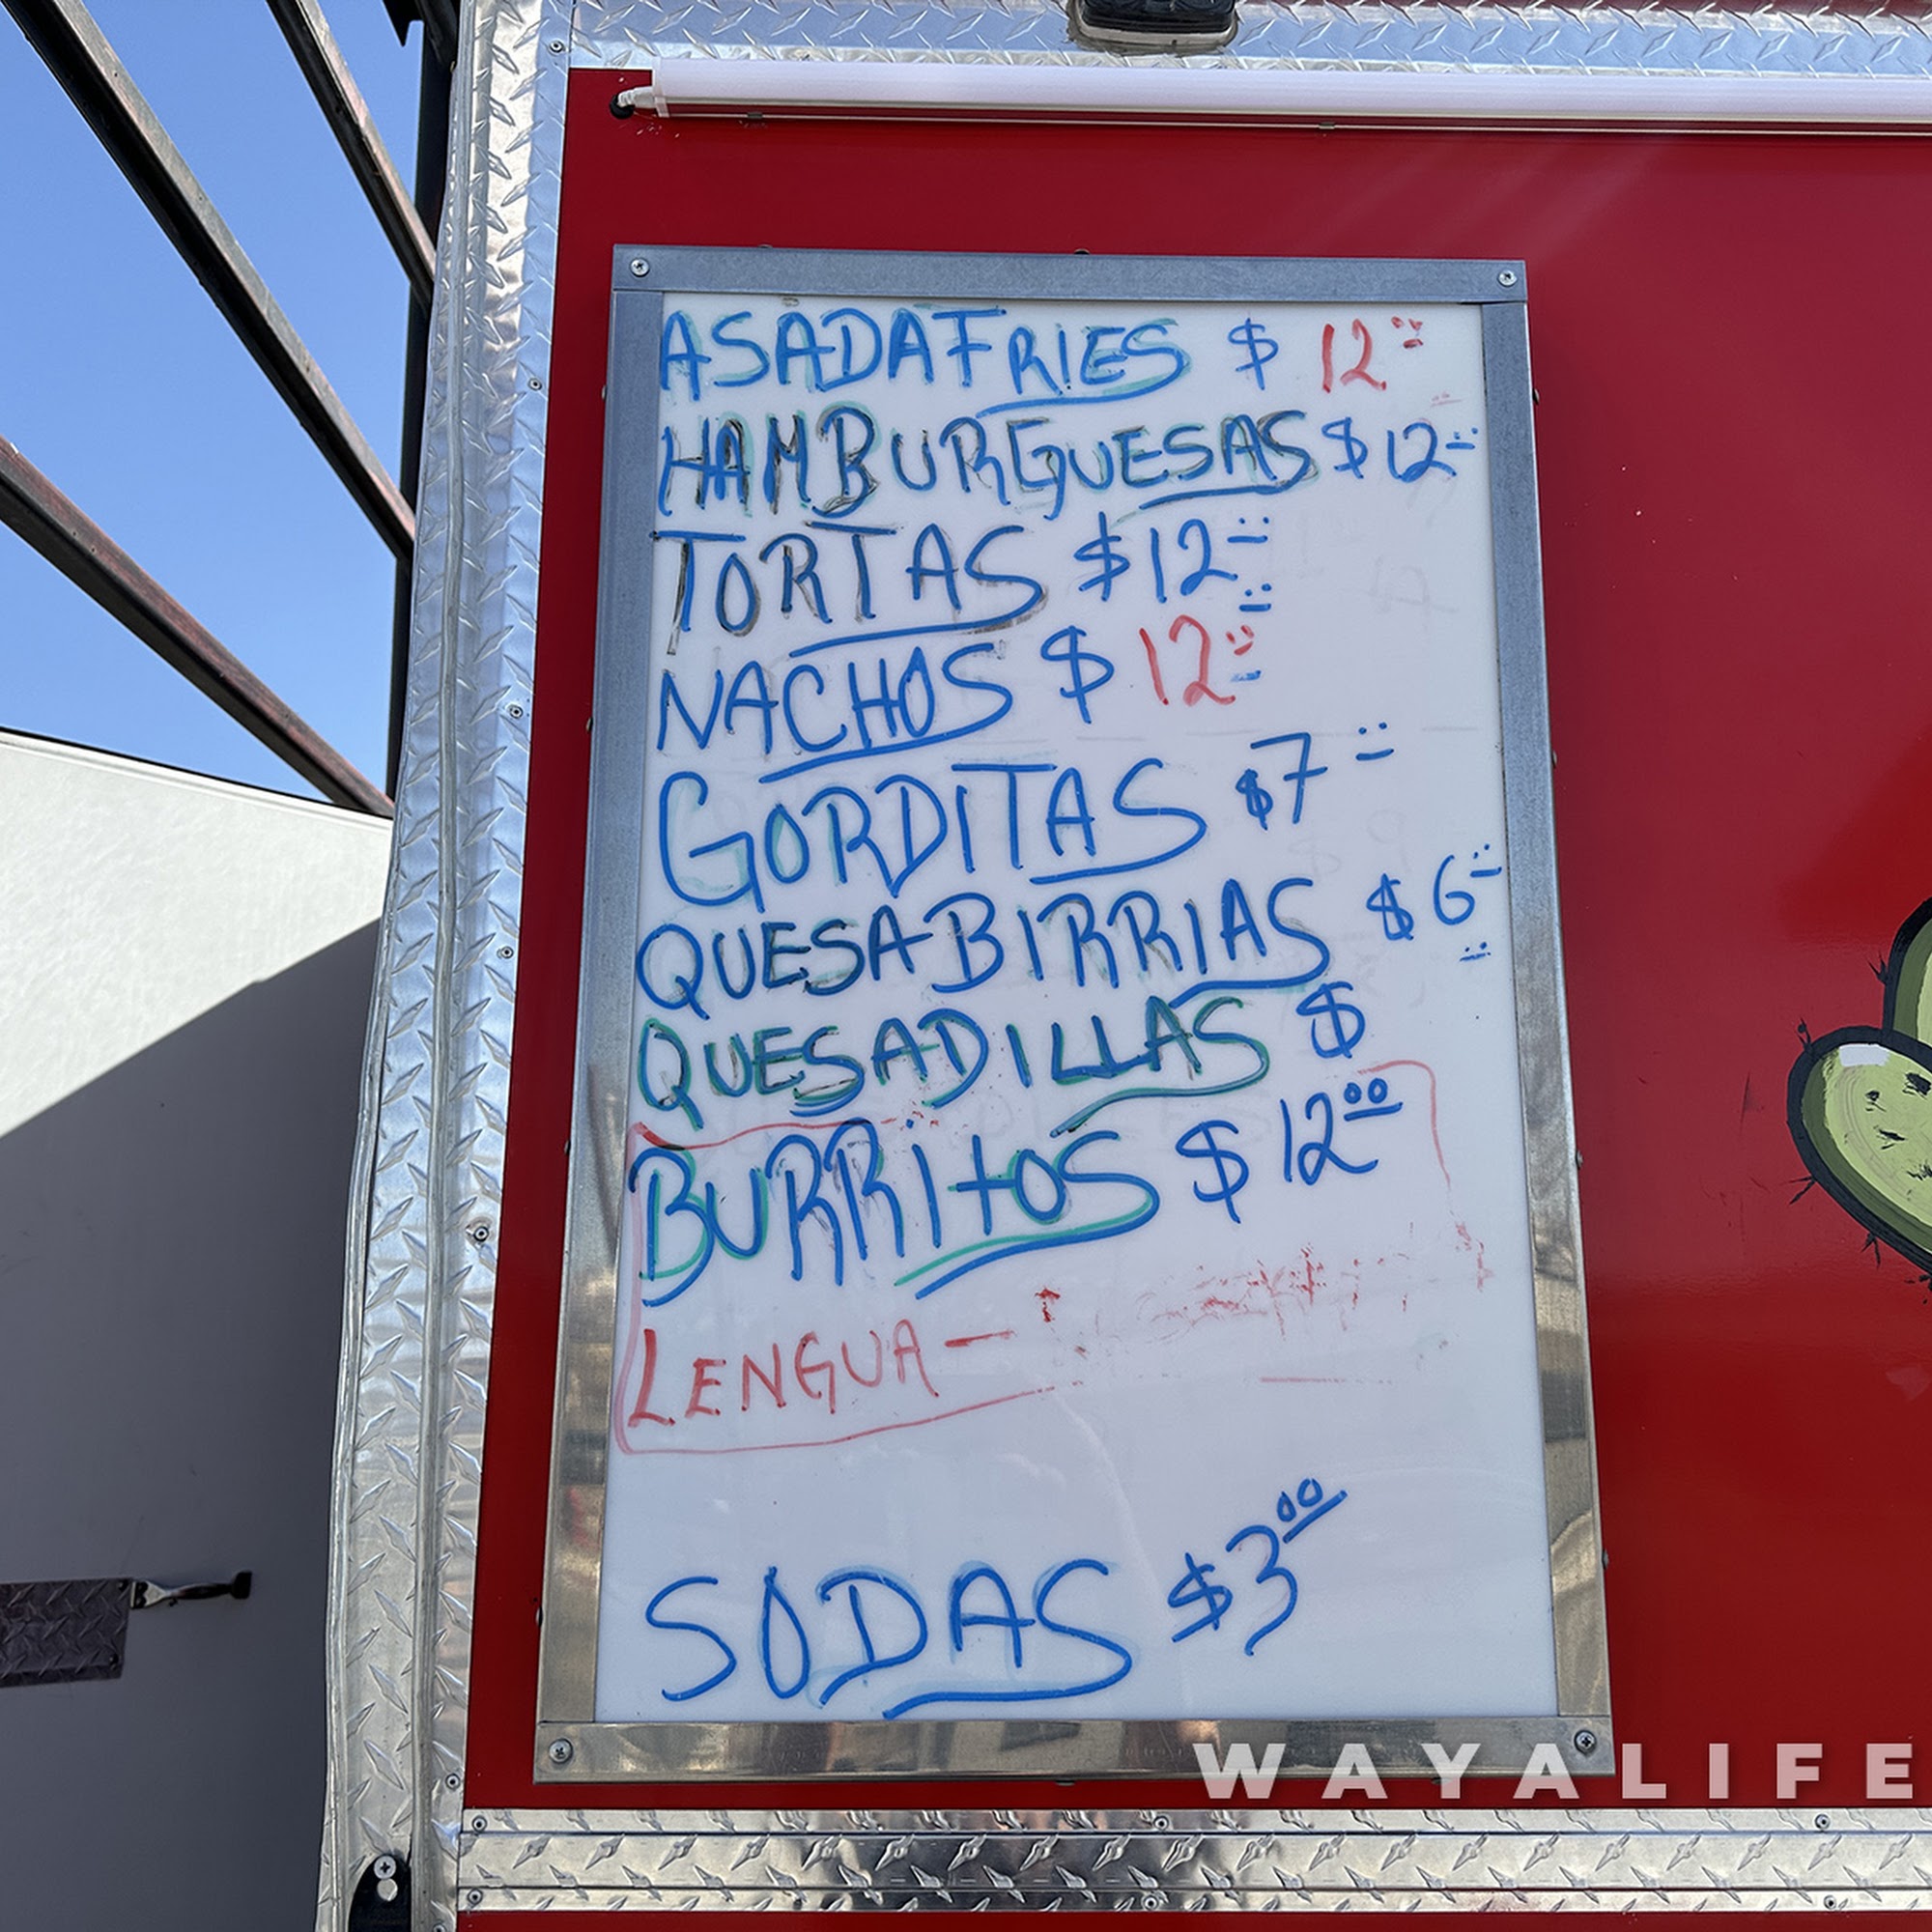 ASADA FRIES $ 12
HAMBURGUESAS $ 12
TORTAS $12
NACHOS $ 12
GORDITAS $7
QUESABIRRIAS $6
QUESADILLAS $
BURRITOS $ 12⁰⁰
LENGUA —
SODAS $3⁰⁰
WAYALIFE